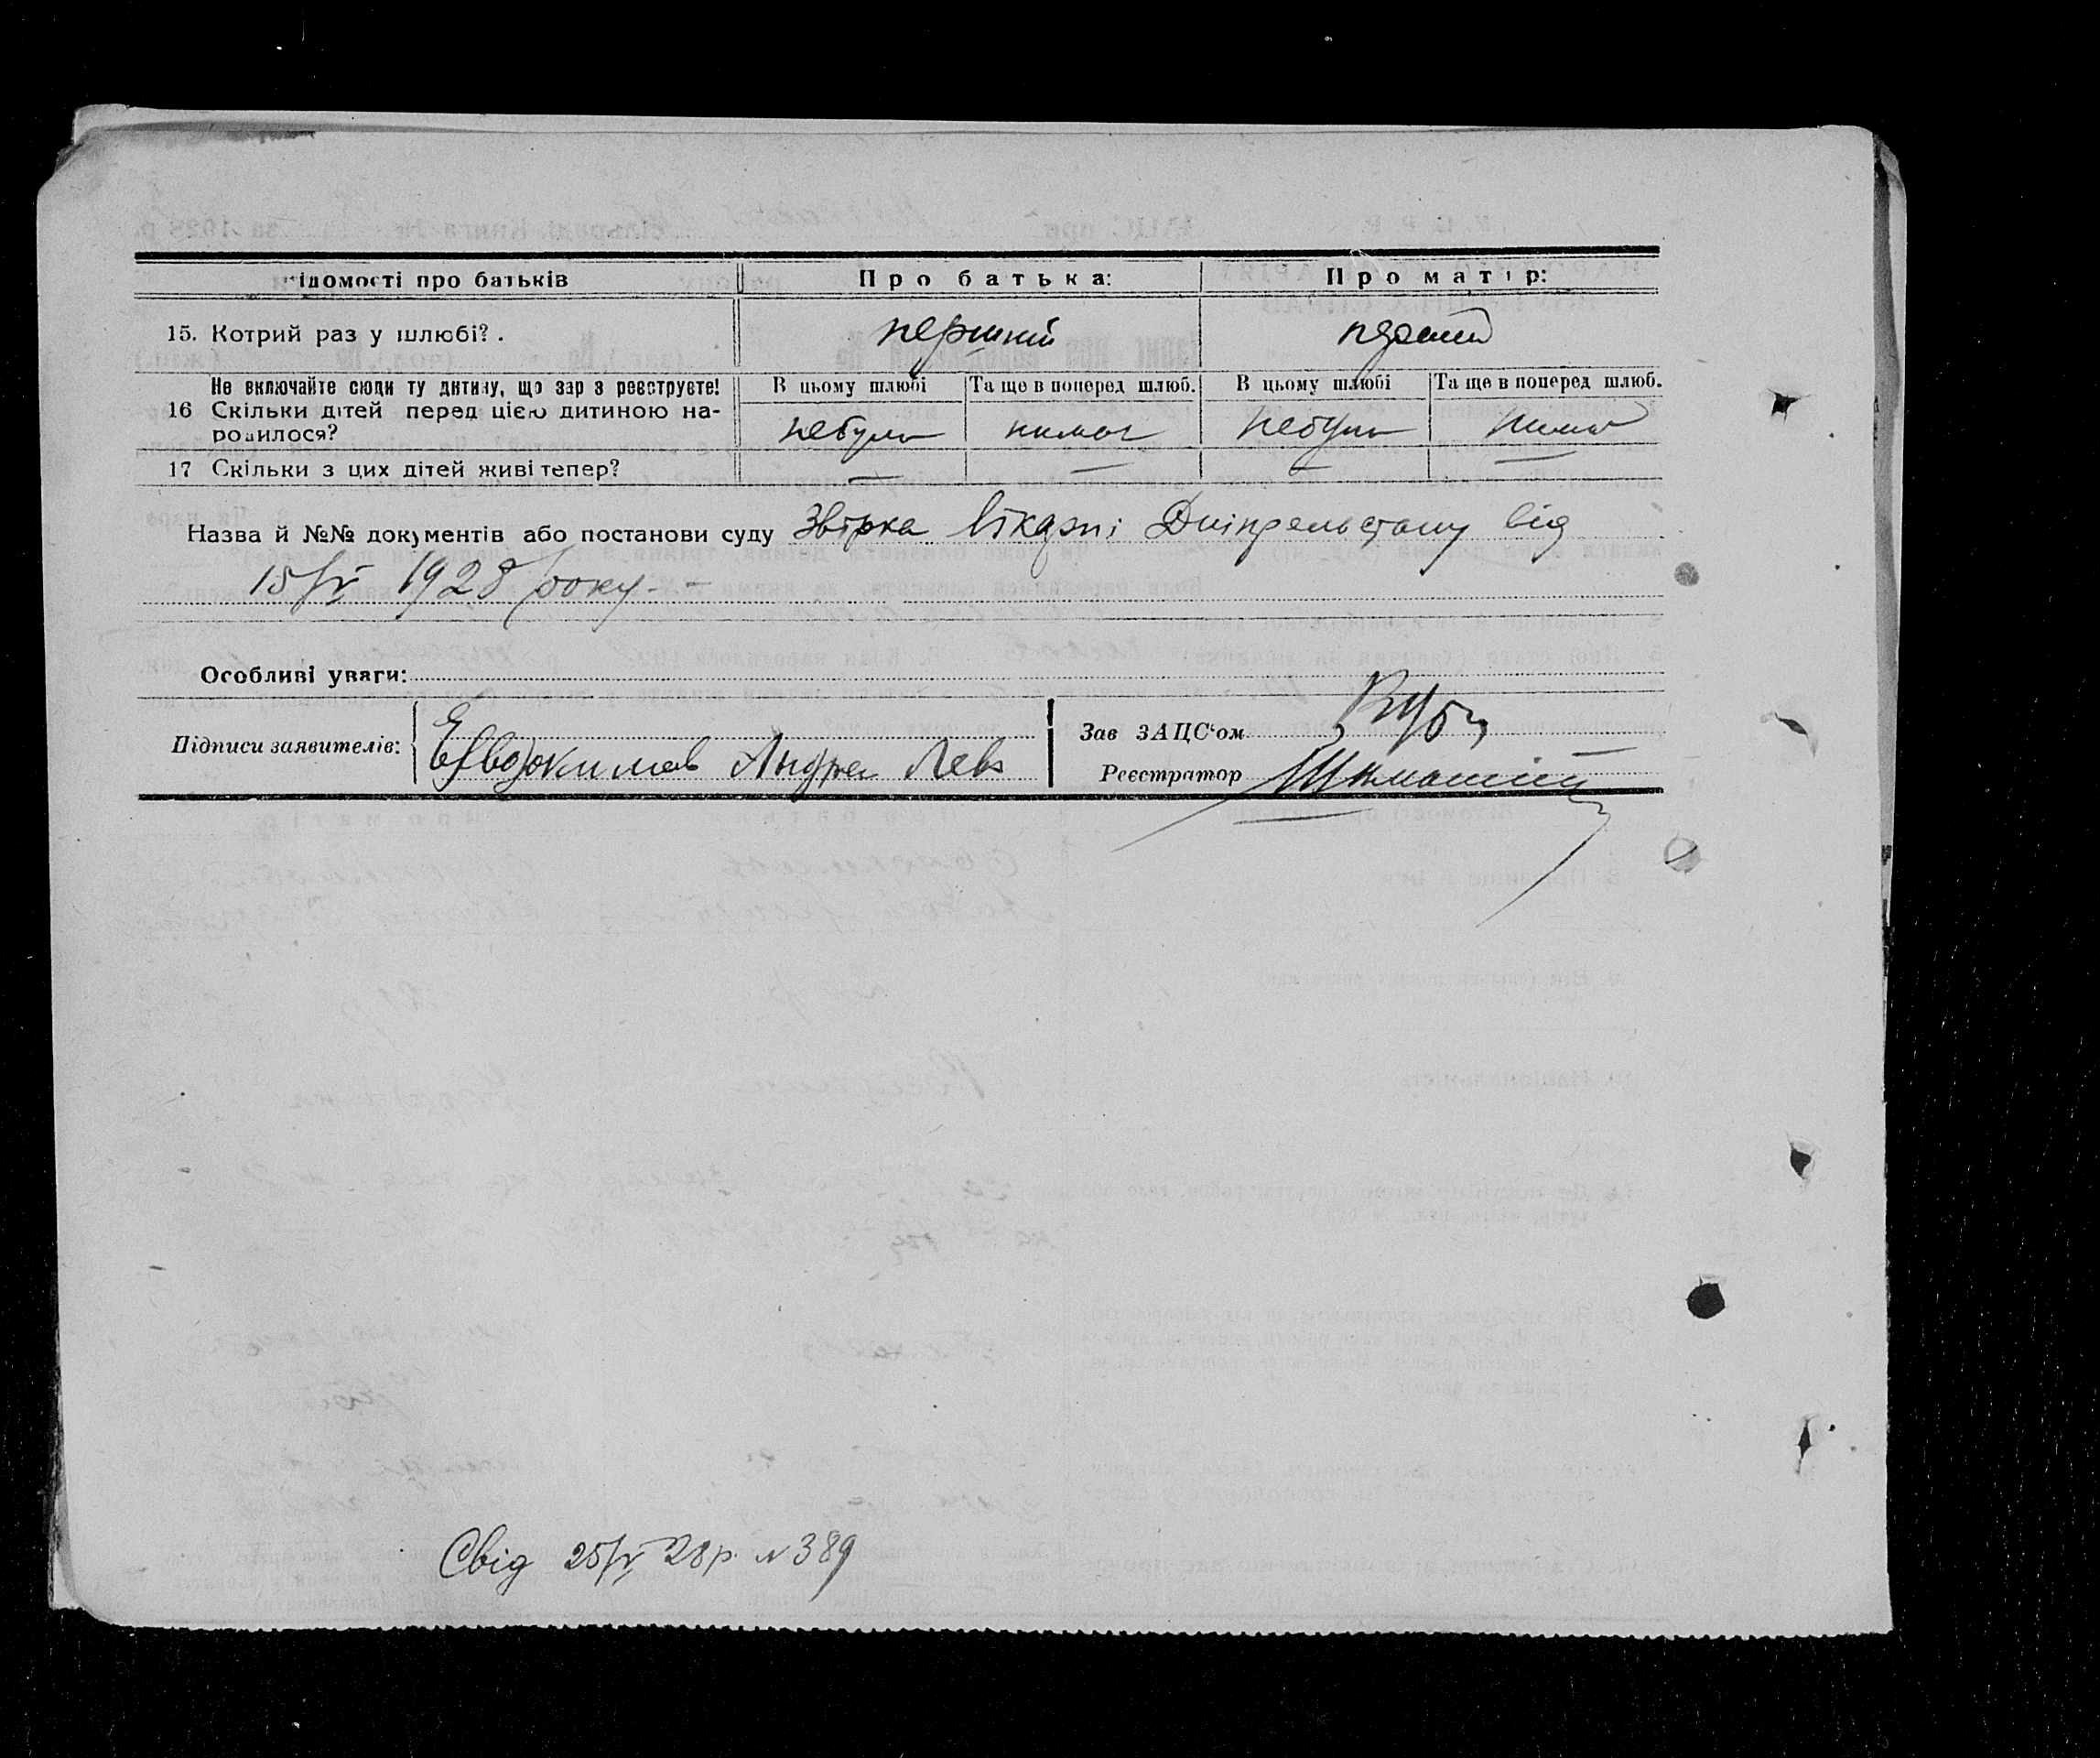 ідомості про батьків Про батька: Про матір:
15. Котрий раз у шлюбі? . перший перший
Не включайте сюди ту дитину, що зараз реєструєте! В цьому шлюбі Та ще в поперед шлюб. В цьому шлюбі Та ще в поперед шлюб.
16 Скільки дітей перед цією дитиною на-
родилося? небуло нимає небуло нимає
17 Скільки з цих дітей живі тепер? — — — —
Назва й №№ документів або постанови суду Лікарні Дніпрельстану від
15/V 1928 року. -
Особливі уваги:
Підписи заявителів: Евдокимов Андре Лев
Зав ЗАЦС'ом
Реєстратор
Свід 25/V 28 р. № 389